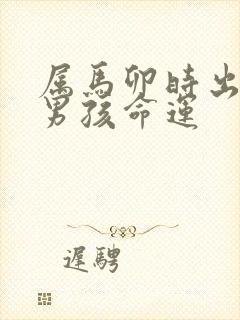 属馬卯時出
男孩命運
遲騁